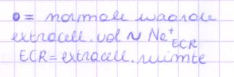 0 = normale waarde
extracell. vol ~ Na⁺ECR
ECR = extracell. ruimte